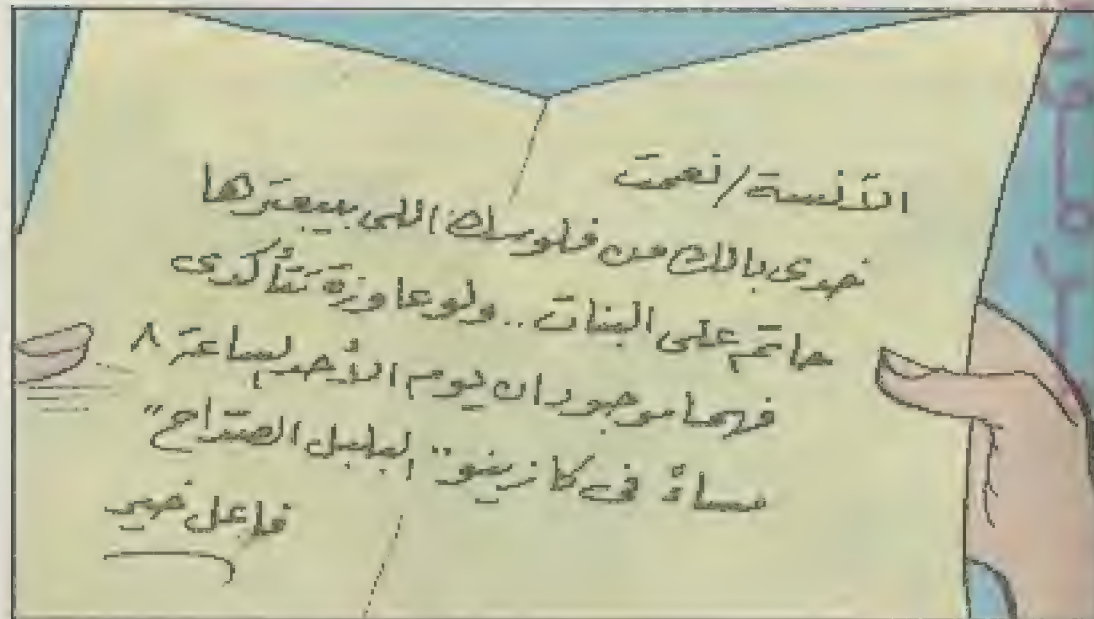 الآنسة/نعمت
خدى بالك من فلوسك اللى بيبعترها
حاتم على البنات .. ولو عاوزة تتأكدى
فهما موجودان يوم الأحد الساعة ٨
مساءً فى كازينو "البلبل الصداح"
فاعل خير